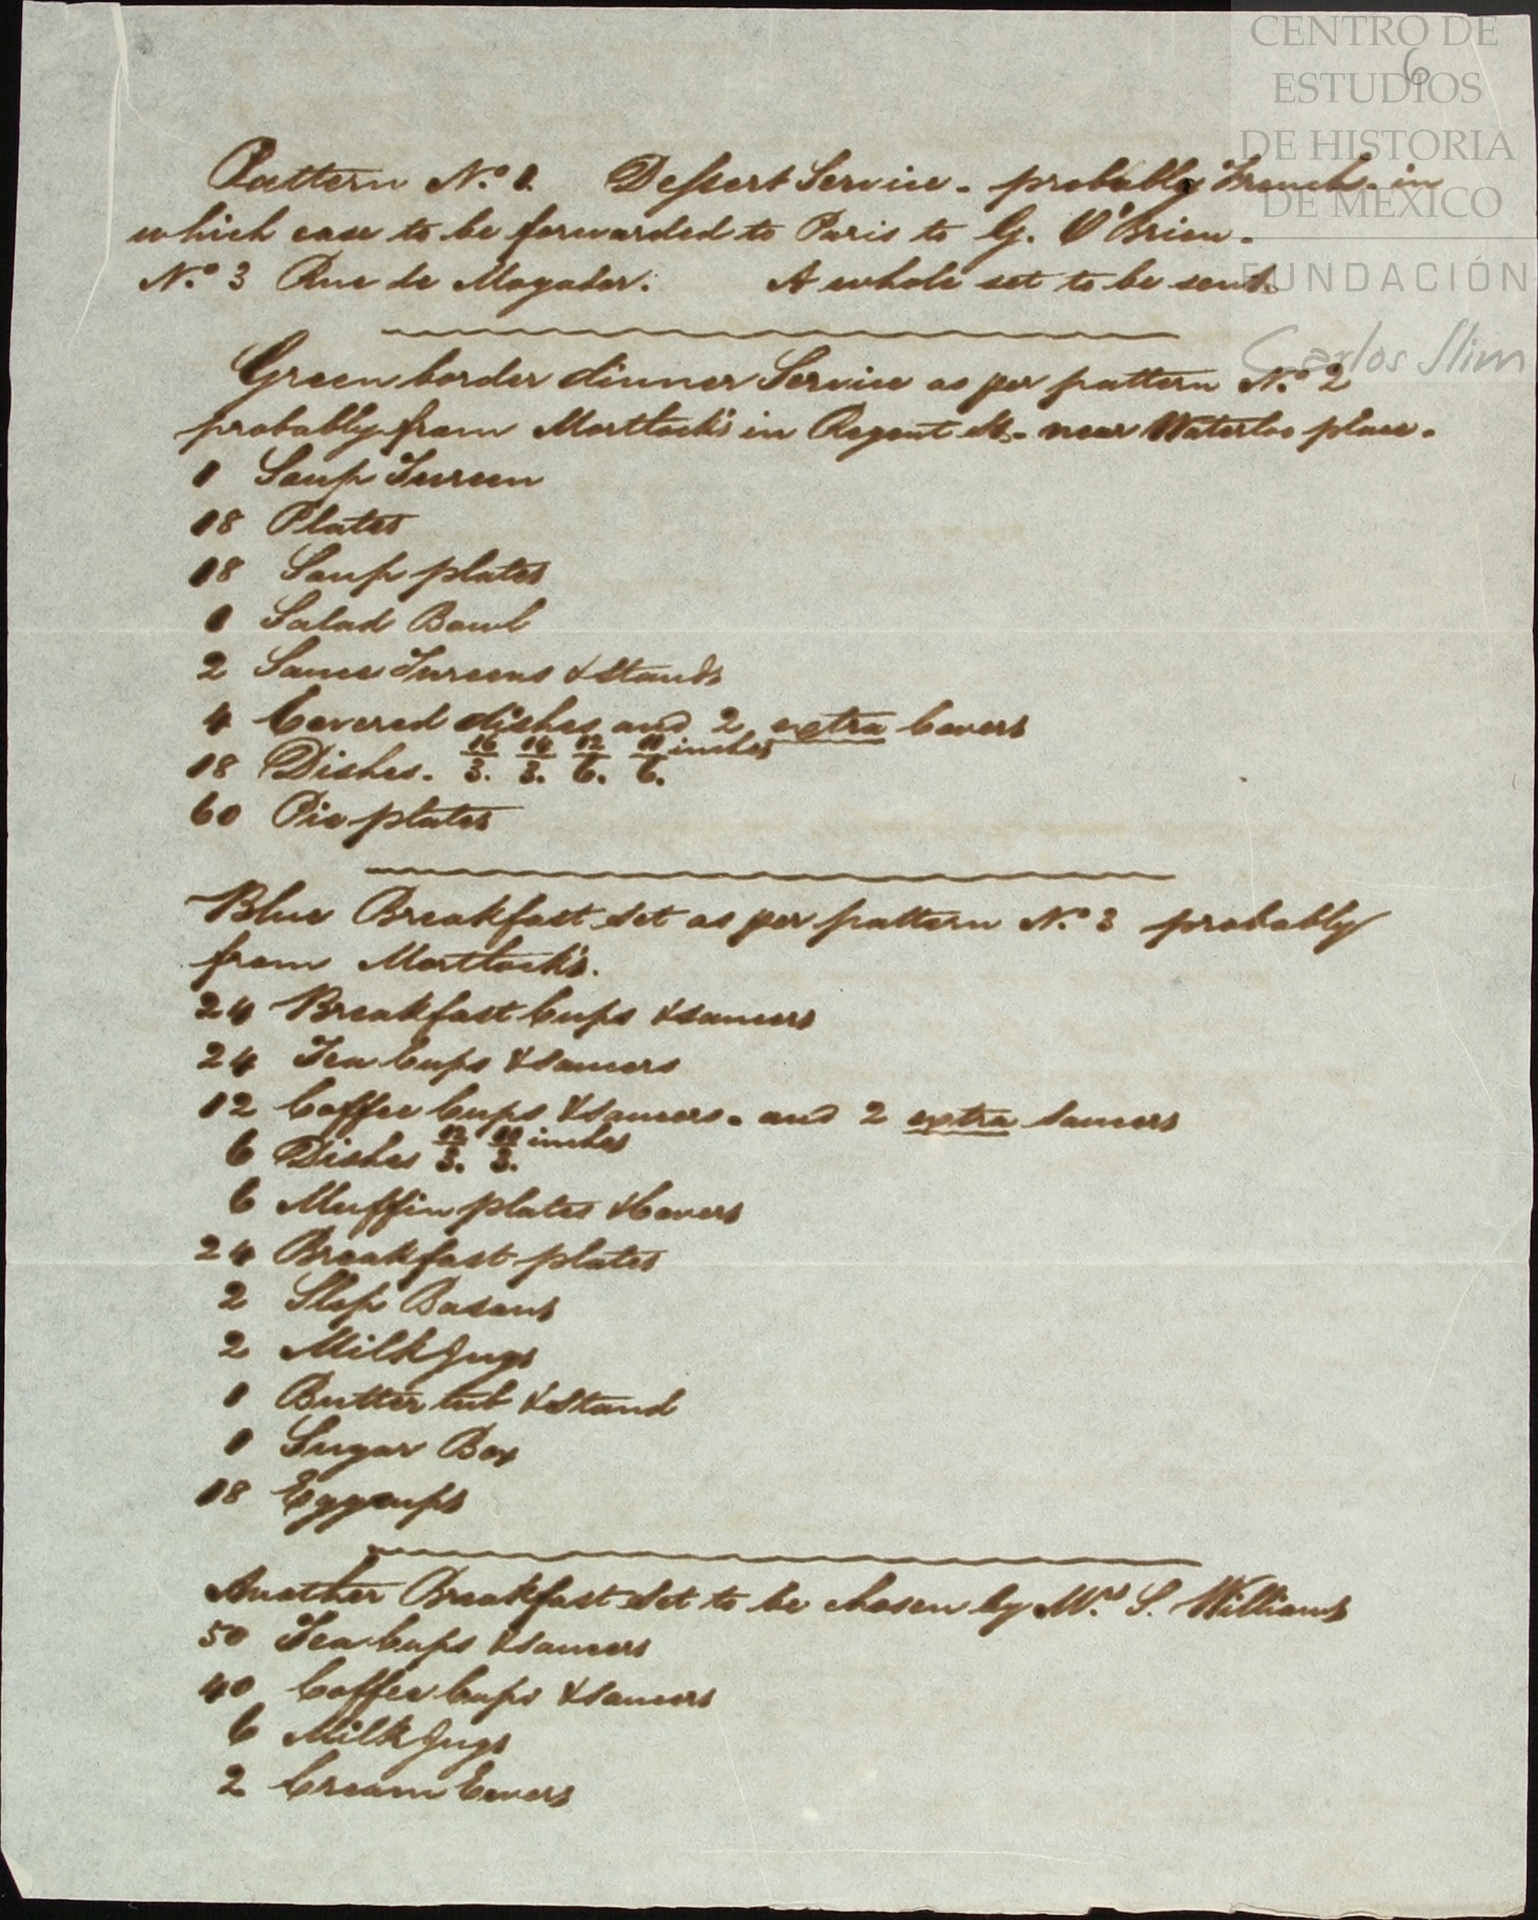 CENTRO DE
ESTUDIOS
DE HISTORIA
DE MEXICO
FUNDACIÓN
Carlos Slim
6
Pattern N.o 1. Dessert Service - probably French - in
which case to be forwarded to Paris to G. O'Brien.
N.o 3 Rue de Mogador. A whole set to be sent.
Green border dinner Service as per pattern N.o 2
probably from Mortlock's in Regent St. near Waterloo place.
1 Soup Tureen
18 Plates
18 Soup plates
1 Salad Bowl
2 Sauce Tureens & Stands
4 Covered dishes and 2 extra Covers
18 Dishes. 16/3. 14/3. 12/6. 11/6. inches
60 Pie plates
Blue Breakfast set as per pattern N.o 3 probably
from Mortlock's.
24 Breakfast Cups & saucers
24 Tea Cups & saucers
12 Coffee Cups & saucers. and 2 extra saucers
6 Dishes 12/3. 10/3. inches
6 Muffin plates & Covers
24 Breakfast plates
2 Slop Basons
2 Milk Jugs
1 Butter tub & Stand
1 Sugar Box
18 Egg cups
Another Breakfast Set to be chosen by M.rs S. Williams
50 Tea Cups & saucers
40 Coffee Cups & saucers
6 Milk Jugs
2 Cream Ewers